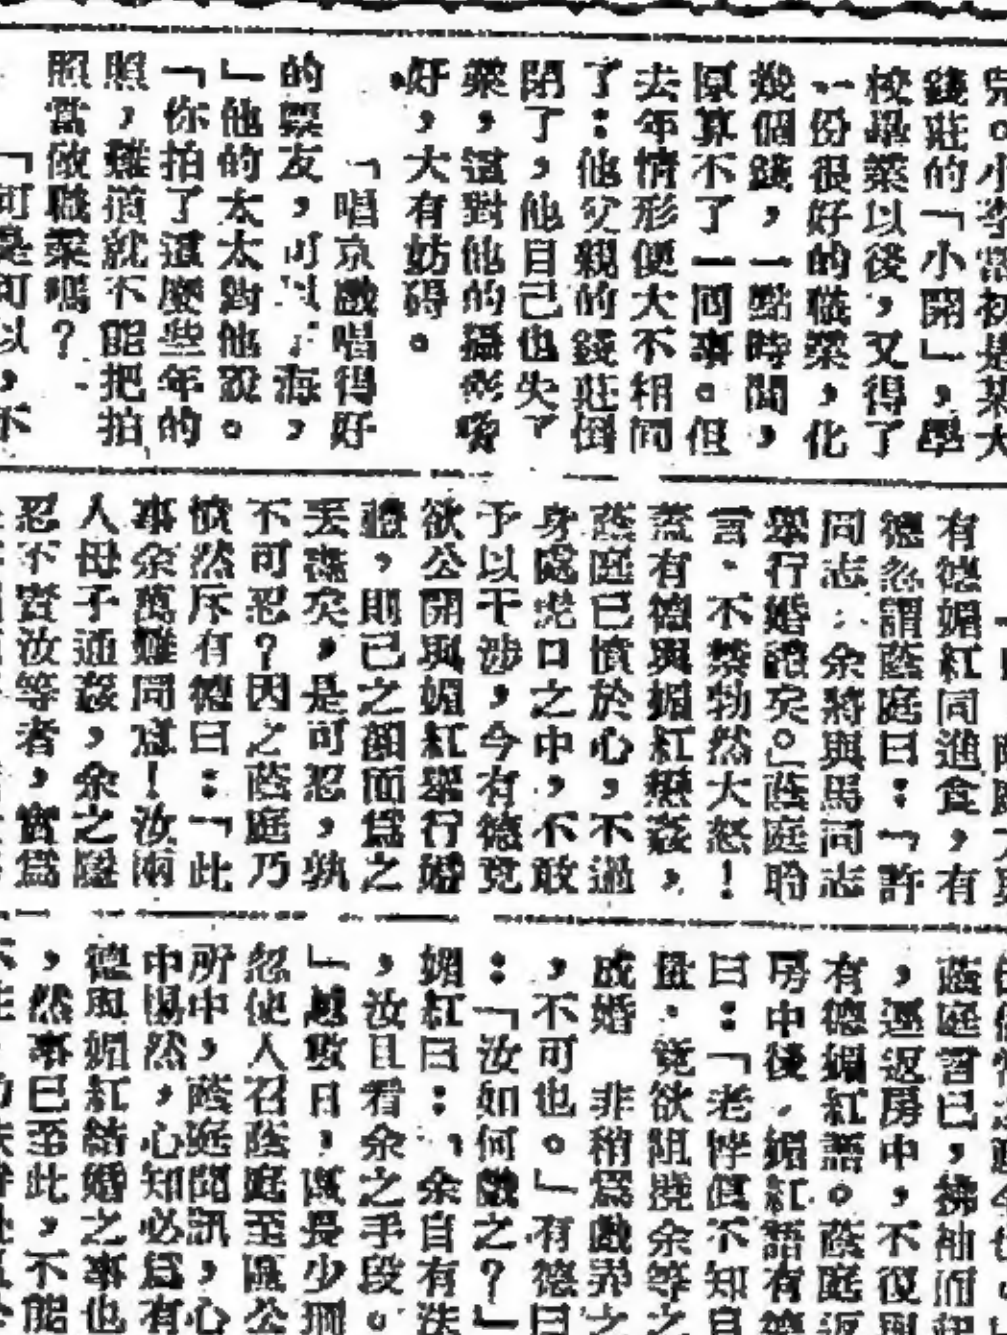 錢莊的「小開」，學
校畢業以後，又得了
一份很好的職業，化
幾個錢，一點時間，
原算不了一回事。但
去年情形便大不相同
了：他父親的錢莊倒
閉了，他自己也失了
業，這對他的攝影嗜
好，大有妨碍。
「唱京戲唱得好
的票友，可以下海，
」他的太太對他說。
「你拍了這麼些年的
照，難道就不能把拍
照當做職業嗎？
「可是可以，不
有德媚紅同進食，有
德忽謂蔭庭曰：「許
同志：余將與馬同志
舉行婚禮矣。」蔭庭聆
言。不禁勃然大怒！
蓋有德與媚紅姦，
蔭庭已憤於心，不過
身處虎口之中，不敢
予以干涉，今有德竟
欲公開與媚紅舉行婚
禮，則己之顏面為之
丟盡矣，是可忍，孰
不可忍？因之蔭庭乃
憤然斥有德曰：「此
事余萬難同意！汝兩
人母子通姦，余之隱
忍不責汝等者，實為
蔭庭言已，拂袖而
，逕返房中，不復與
有德媚紅語。蔭庭返
房中後，媚紅語有德
曰：「老悖真不知自
量。竟欲阻撓余等之
成婚　非稍為戲弄之
，不可也。」有德曰
：「汝如何戲之？」
媚紅曰：「余自有法
，汝且看余之手段。
」越數日，區長少
忽使人召蔭庭至區公
所中，蔭庭聞訊，心
中惕然，心知必為有
德與媚紅結婚之事也
，然事已至此，不能